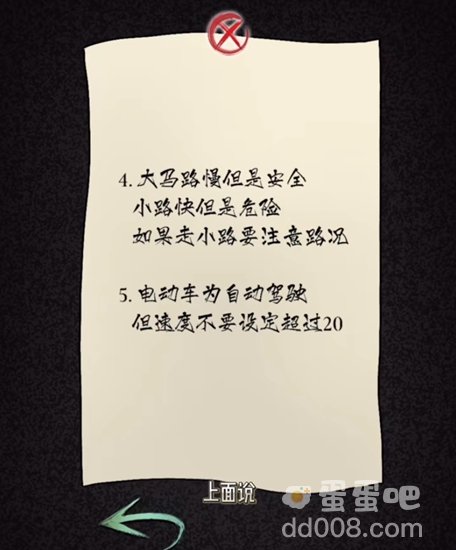 4. 大马路慢但是安全
小路快但是危险
如果走小路要注意路况
5. 电动车为自动驾驶
但速度不要设定超过20
上面说
蛋蛋吧
dd008.com